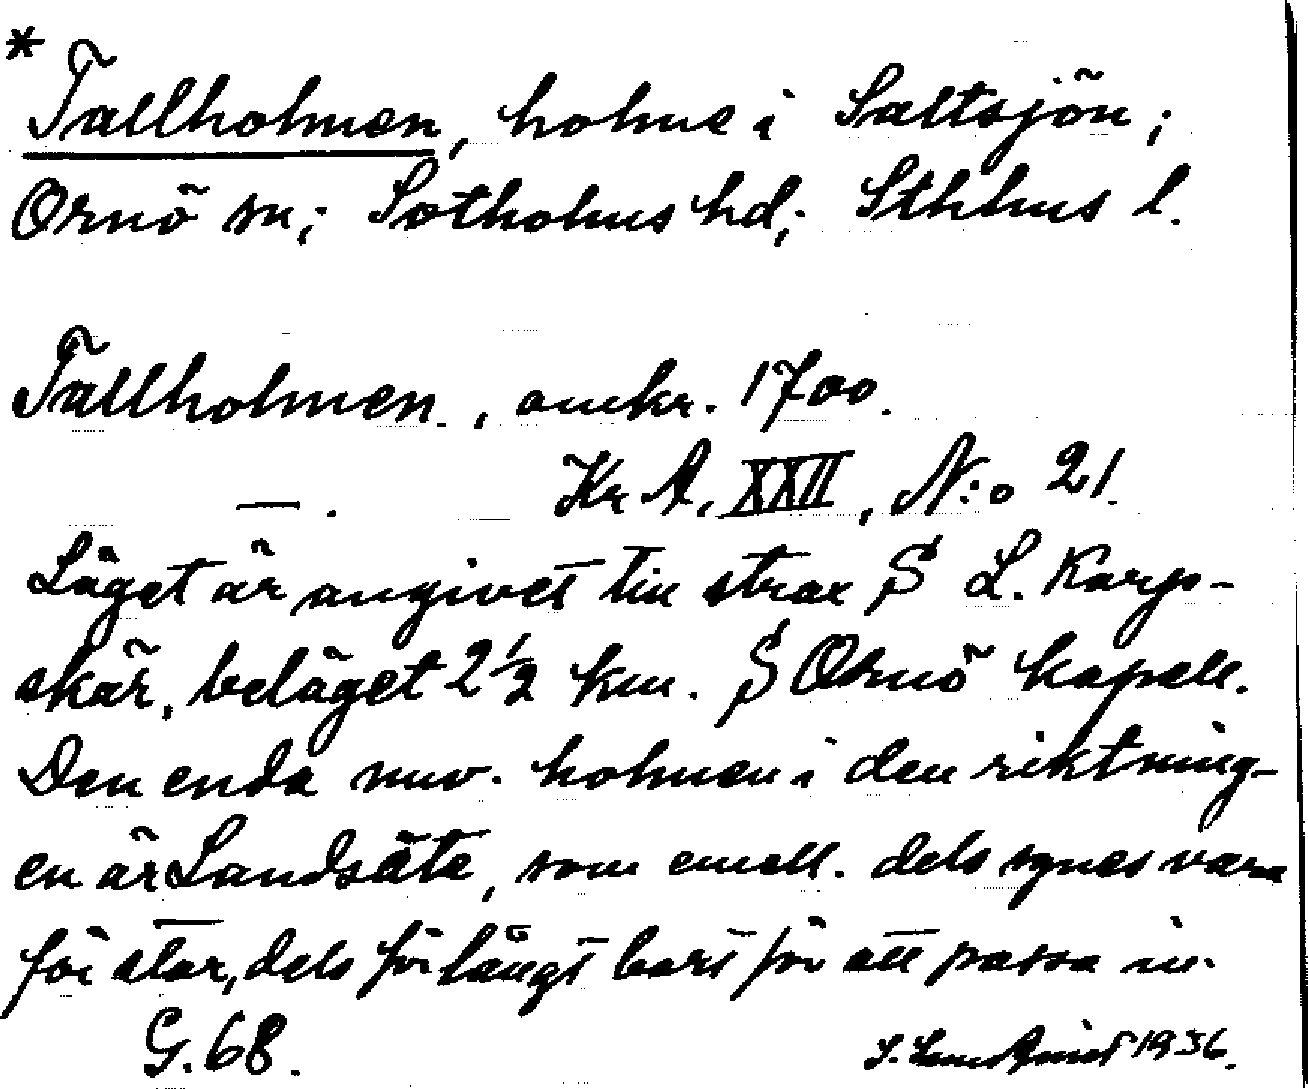 * Tallholmen, holme i Saltsjön;
Ornö sn; Sotholms hd; Sthlms l.
Tallholmen., omkr. 1700.
—. Kr A, XXII, N:o 21.
Läget är angivet till strax S L. Karp-
skär, beläget 2 1/2 km. S Ornö kapell.
Den enda nuv. holmen i den riktning-
en är Landsäte, som emell. dels synes vara
för stor, dels för långt bort för att passa in.
G. 68.
1936.